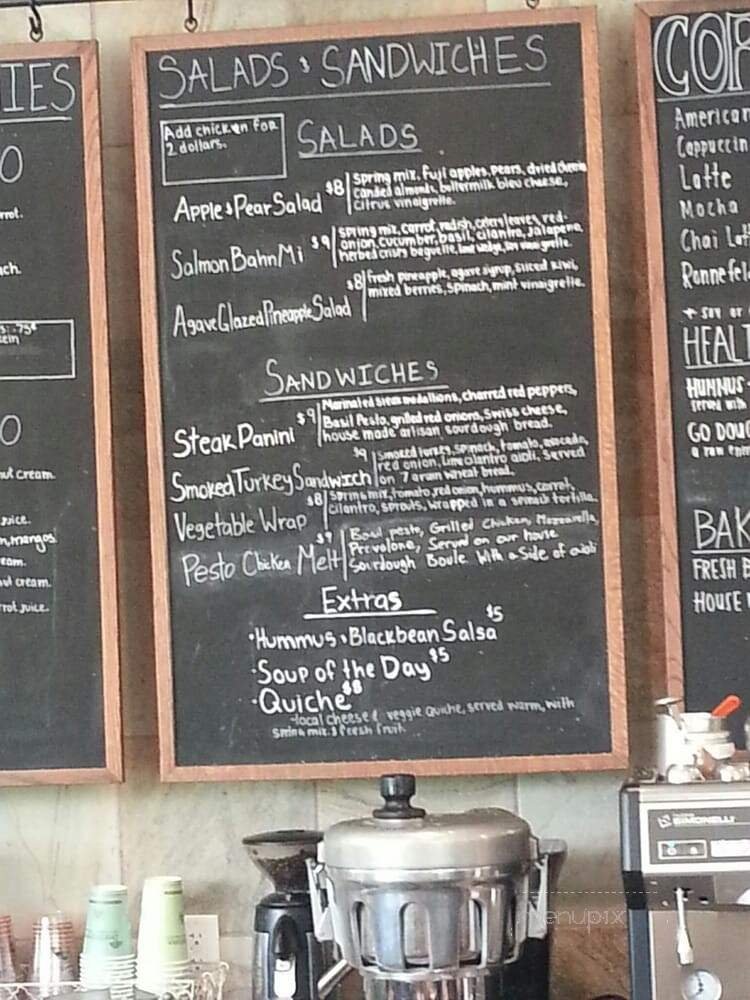 IES
O
rrot.
ach.
s: .75¢
tein
O
nut cream.
juice.
n, mangos
eam.
nut cream.
rrot juice.
SALADS & SANDWICHES
Add chicken for
2 dollars.
SALADS
Apple & Pear Salad $8
Spring mix, Fuji apples, pears, dried cherries
Candied almonds, buttermilk bleu cheese,
Citrus vinaigrette.
Salmon Bahn Mi $9
Spring mix, carrot, radish, celery leaves, red
onion, cucumber, basil, cilantro, jalapeno,
herbed crisps baguette, lime wedge, vinaigrette.
Agave Glazed Pineapple Salad $8
fresh pineapple, agave syrup, sliced kiwi,
mixed berries, spinach, mint vinaigrette.
SANDWICHES
Steak Panini $9
Marinated steak medallions, charred red peppers,
Basil Pesto, grilled red onions, Swiss cheese,
house made artisan sourdough bread.
Smoked Turkey Sandwich $9
Smoked turkey, spinach, tomato, avocado,
red onion, Lime cilantro aioli, Served
on 7 grain wheat bread.
Vegetable Wrap $8
Spring mix, tomato, red onion, hummus, carrot,
cilantro, sprouts, wrapped in a spinach tortilla.
Pesto Chicken Melt $9
Basil pesto, Grilled Chicken, Mozzarella,
Provolone, Served on our house
Sourdough Boule with a side of aioli
Extras
·Hummus & Blackbean Salsa $5
·Soup of the Day $5
·Quiche $8
-local cheese & veggie quiche, served warm, with
spring mix & fresh fruit
COF
American
Cappuccin
Latte
Mocha
Chai Lat
Ronnefel
+ soy or
HEALT
HUMMUS
served with
GO DOUG
a raw ener
BAK
FRESH B
HOUSE
SIMONELLI
menupix